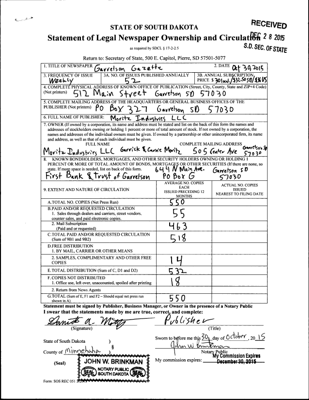 STATE OF SOUTH DAKOTA
Statement of Legal Newspaper Ownership and Circulation
RECEIVED
28 2015
S.D. SEC. OF STATE
as required by SDCL § 17-2-2.5
Return to: Secretary of State, 500 E. Capitol, Pierre, SD 57501-5077
1. TITLE OF NEWSPAPER Garretson Gazette
2. DATE Oct 2015
3. FREQUENCY OF ISSUE Weekly
3A. NO. OF ISSUES PUBLISHED ANNUALLY 52
3B. ANNUAL SUBSCRIPTION PRICE
4. COMPLETE PHYSICAL ADDRESS OF KNOWN OFFICE OF PUBLICATION (Street, City, County, State and ZIP+4 Code)
(Not printers) 512 Main Street Garretson SD 57030
5. COMPLETE MAILING ADDRESS OF THE HEADQUARTERS OR GENERAL BUSINESS OFFICES OF THE
PUBLISHER (Not printer) PO Box 327 Garretson SD 57030
6. FULL NAME OF PUBLISHER: Moritz Industries LLC
7. OWNER (If owned by a corporation, its name and address must be stated and also the names and
addresses of stockholders owning or holding 1 percent or more of total amount of stock. If not owned by a corporation, the
names and addresses of the individual owners must be given. If owned by a partnership or other unincorporated firm, its name
and address, as well as that of each individual must be given.
FULL NAME
COMPLETE MAILING ADDRESS
Moritz Industries LLC Garrick & Carrie Moritz 505 Center Ave Garretson SD 57030
8. KNOWN BONDHOLDERS, MORTGAGEES, AND OTHER SECURITY HOLDERS OWNING OR HOLDING 1
PERCENT OR MORE OF TOTAL AMOUNT OF BONDS, MORTGAGES OR OTHER SECURITIES (If there are none, so
state. If more space is needed, list on back of this form.
First Bank & Trust of Garretson
N Main Ave. Garretson SD
PO Box 57030
9. EXTENT AND NATURE OF CIRCULATION
AVERAGE NO. COPIES EACH ISSUED PRECEDING 12 MONTHS
ACTUAL NO. COPIES ISSUED NEAREST TO FILING DATE
A. TOTAL NO. COPIES (Net Press Run) 550
B. PAID AND/OR REQUESTED CIRCULATION
1. Sales through dealers and carriers, street vendors, counter sales, and paid electronic copies. 55
2. Mail Subscription (Paid and or requested) 463
C. TOTAL PAID AND/OR REQUESTED CIRCULATION (Sum of 9B1 and 9B2) 518
D. FREE DISTRIBUTION
1. BY MAIL, CARRIER OR OTHER MEANS
2. SAMPLES, COMPLIMENTARY AND OTHER FREE COPIES 14
E. TOTAL DISTRIBUTION (Sum of C, D1 and D2) 532
F. COPIES NOT DISTRIBUTED
1. Office use, left over, unaccounted, spoiled after printing 18
2. Return from News Agents
G. TOTAL (Sum of E, F1 and F2 - Should equal net press run shown in A) 550
Statement must be signed by Publisher, Business Manager, or Owner in the presence of a Notary Public
I swear that the statements made by me are true, correct, and complete:
Publisher
(Signature)
(Title)
State of South Dakota
County of Minnehaha
Sworn to before me this day of October, 2015
John W. Brinkman
Notary Public
(Seal)
My commission expires:
My Commission Expires
December 30, 2015
JOHN W. BRINKMAN
NOTARY PUBLIC
SOUTH DAKOTA
Form: SOS REC 051